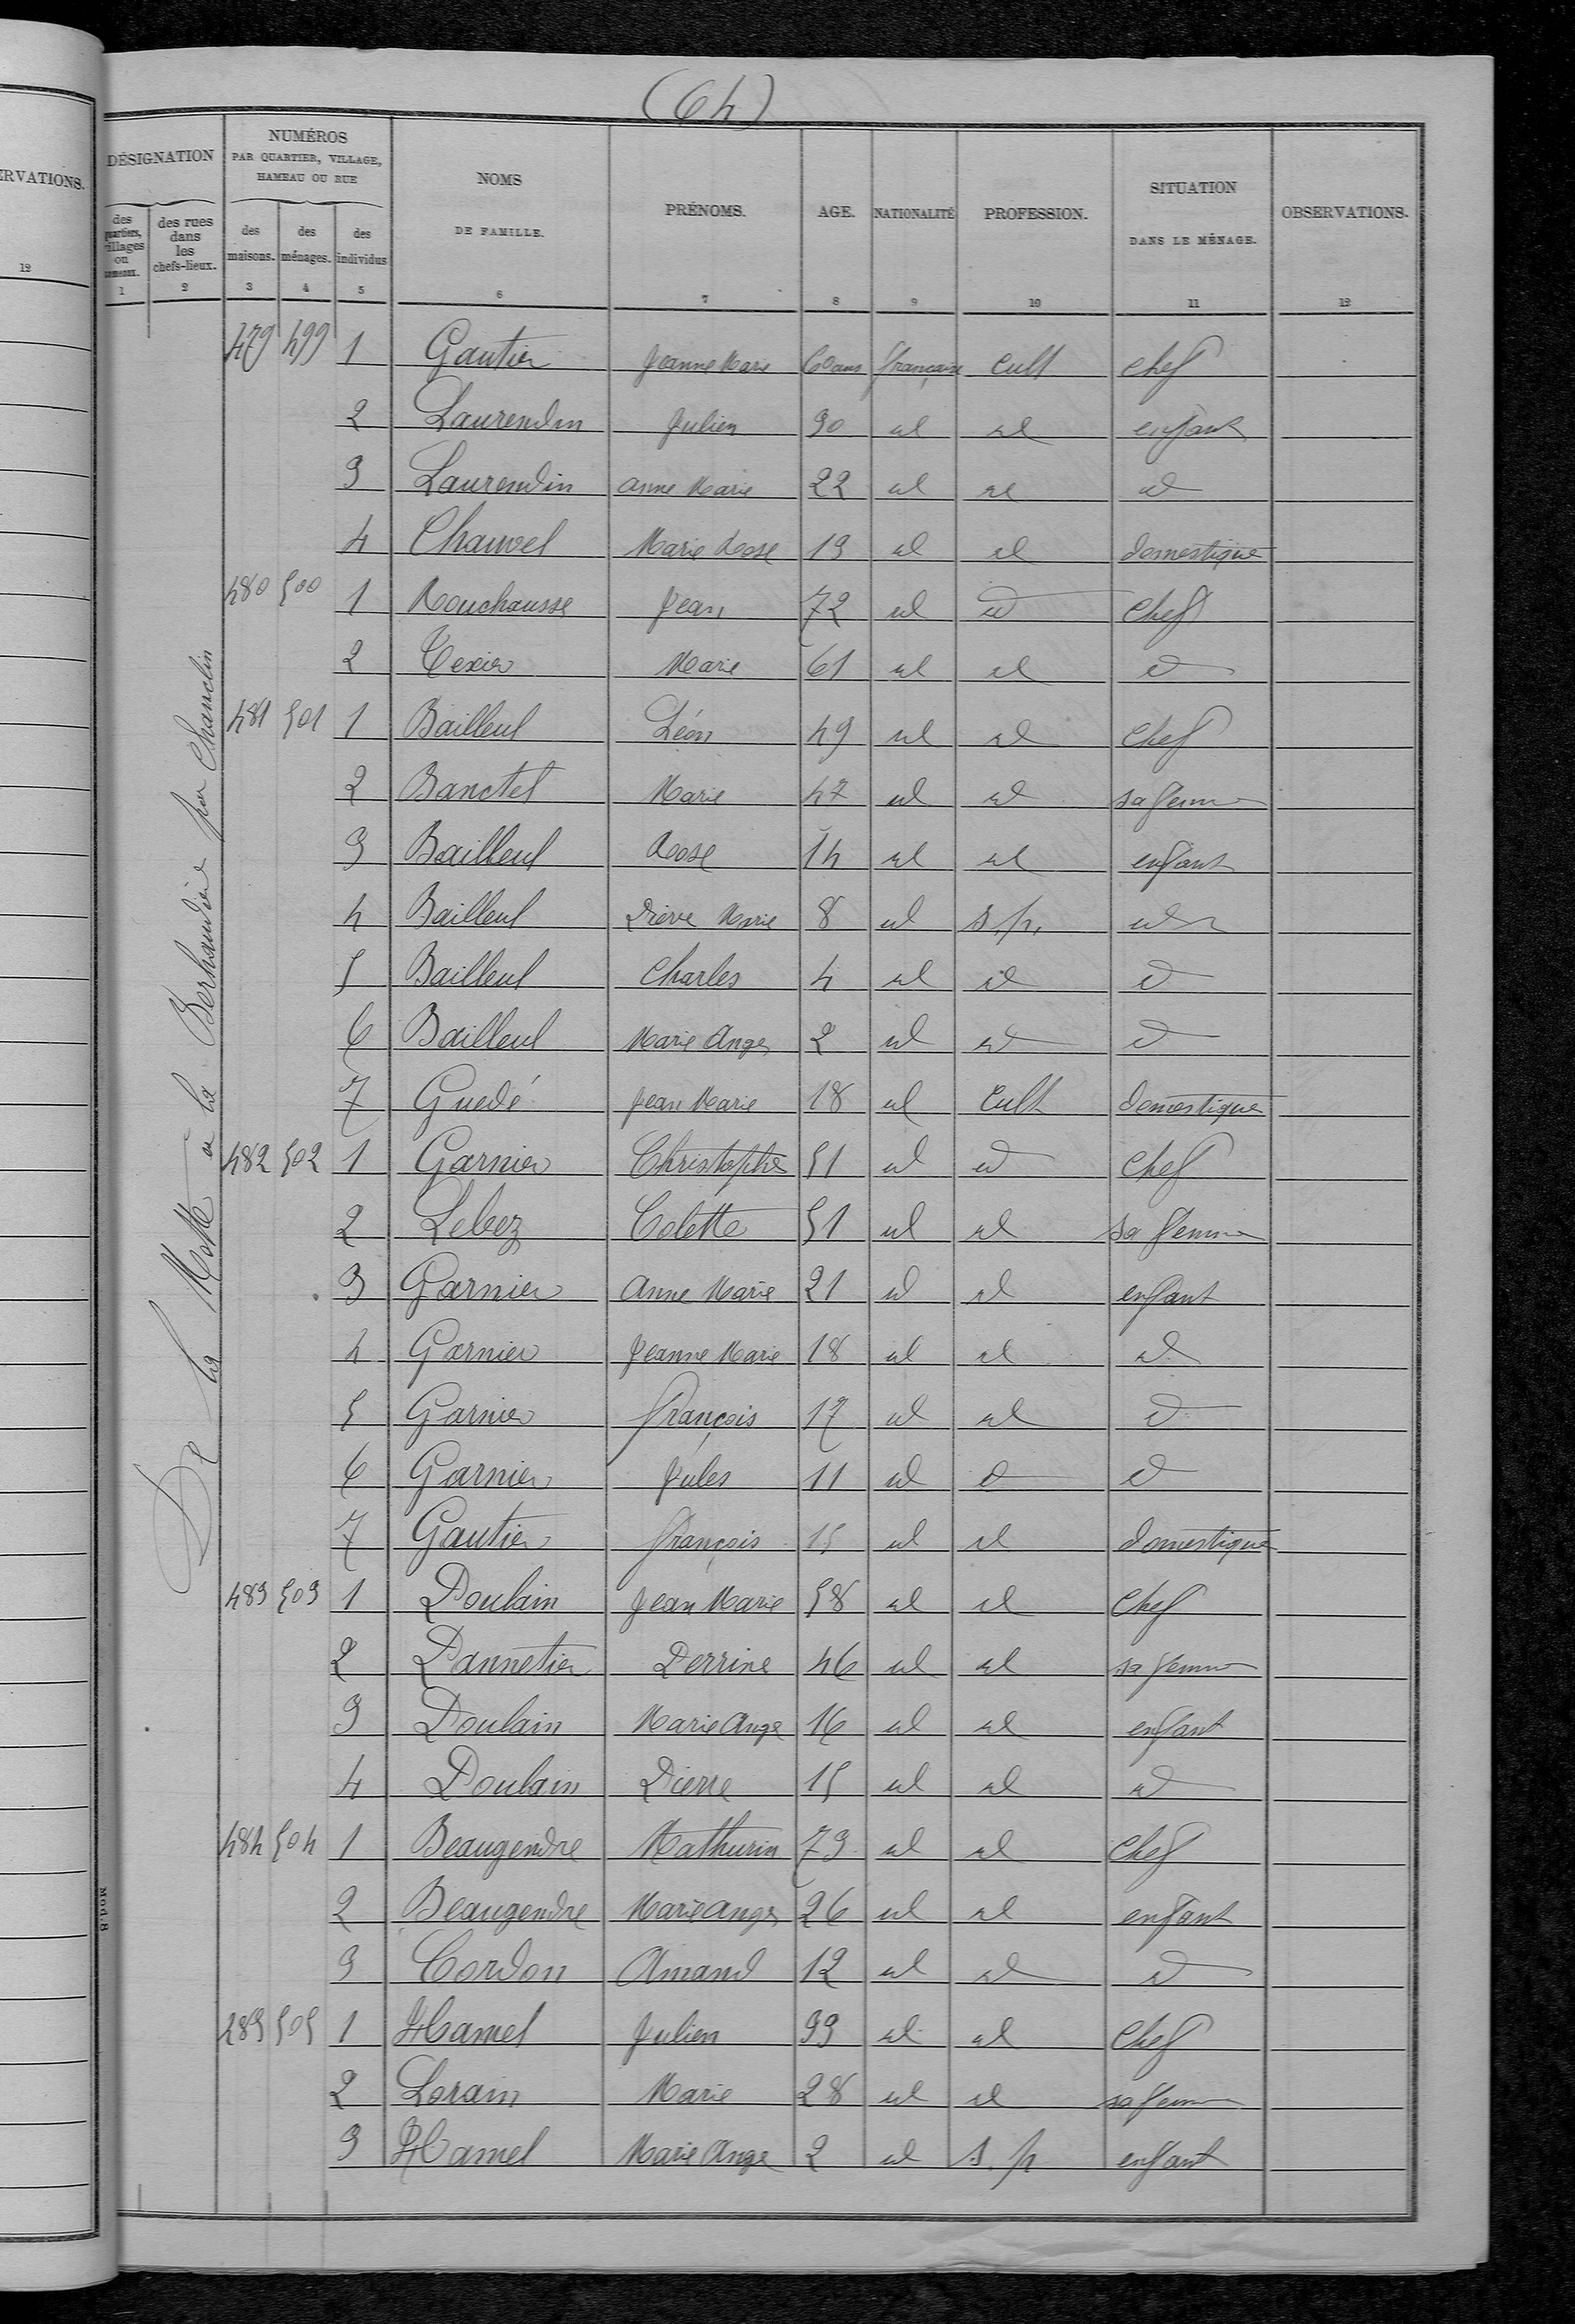 (64)
ERVATIONS.
12
DÉSIGNATION
NUMÉROS
PAR QUARTIER, VILLAGE,
HAMEAU OU RUE
NOMS
DE FAMILLE.
PRÉNOMS.
AGE.
NATIONALITÉ
PROFESSION.
SITUATION
DANS LE MÉNAGE.
OBSERVATIONS.
des rues dans les chefs-lieux.
des maisons.
des ménages.
des individus
1 2 3 4 5 6 7 8 9 10 11 12
De la Motte à la Berhaudière par Chanclin
479 499 1 Gautier Jeanne Marie 60 ans française cult chef
2 Laurendin Julien 30 id id enfant
3 Laurendin Anne Marie 22 id id id
4 Chauvel Marie Rose 19 id id domestique
480 500 1 Rouchausse Jean 72 id id chef
2 Texier Marie 61 id id id
481 501 1 Bailleul Léon 49 id id chef
2 Banctel Marie 47 id id sa femme
3 Bailleul Rose 14 id id enfant
4 Bailleul Pierre Marie 8 id s.p. id
5 Bailleul Charles 4 id id id
6 Bailleul Marie Ange 2 id id id
7 Guedé Jean Marie 18 id Cult domestique
482 502 1 Garnier Christophe 51 id id chef
2 Lebez Colette 51 id id sa femme
3 Garnier Anne Marie 21 id id enfant
4 Garnier Jeanne Marie 18 id id id
5 Garnier François 17 id id id
6 Garnier Jules 11 id id id
7 Gautier François 15 id id domestique
483 503 1 Poulain Jean Marie 58 id id chef
2 Pannetier Perrine 46 id id sa femme
3 Poulain Marie Ange 16 id id enfant
4 Poulain Pierre 15 id id id
484 504 1 Beaugendre Mathurin 73 id id chef
2 Beaugendre Marie Ange 26 id id enfant
3 Cordon Amand 12 id id id
285 505 1 Hamel Julien 33 id id chef
2 Lorain Marie 28 id id sa femme
3 Hamel Marie Ange 2 id s.p enfant
Mod. 8